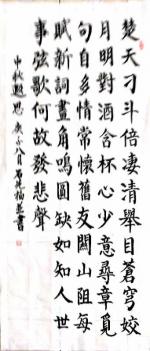 楚天刁斗倍凄清舉目蒼穹姣
月明對酒含杯心少意尋章覓
句自多情常懷舊友關山阻每
賦新詞畫角鳴圓缺如知人世
事弦歌何故發悲聲
中秋遐思庚子八月